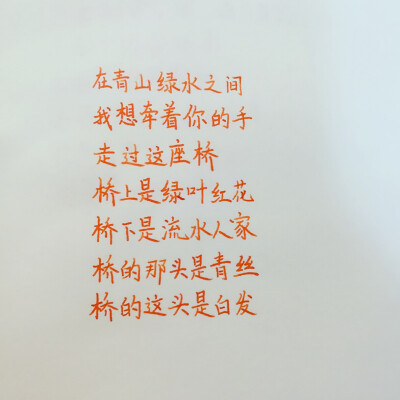 在青山绿水之间
我想牵着你的手
走过这座桥
桥上是绿叶红花
桥下是流水人家
桥的那头是青丝
桥的这头是白发